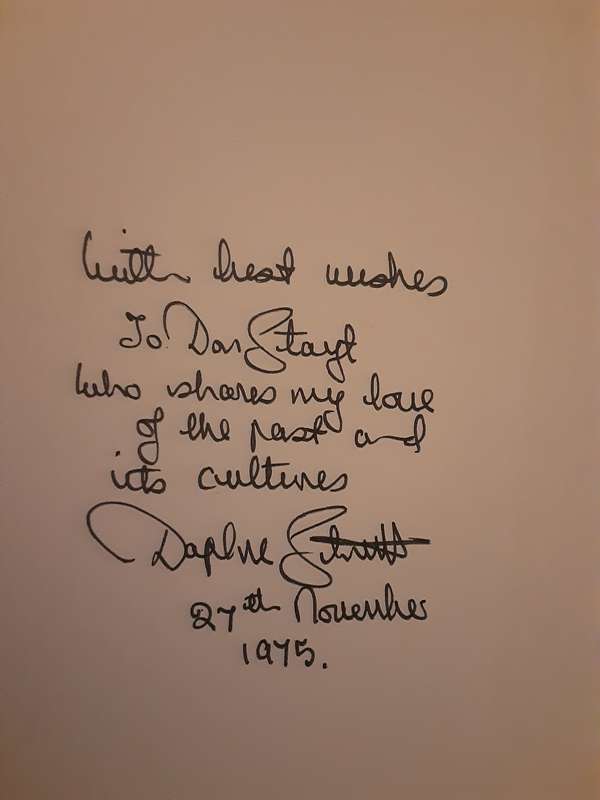 With best wishes
To Don Stayt
who shares my love
of the past and
its cultures
Daphne Strutt
27th November
1975.